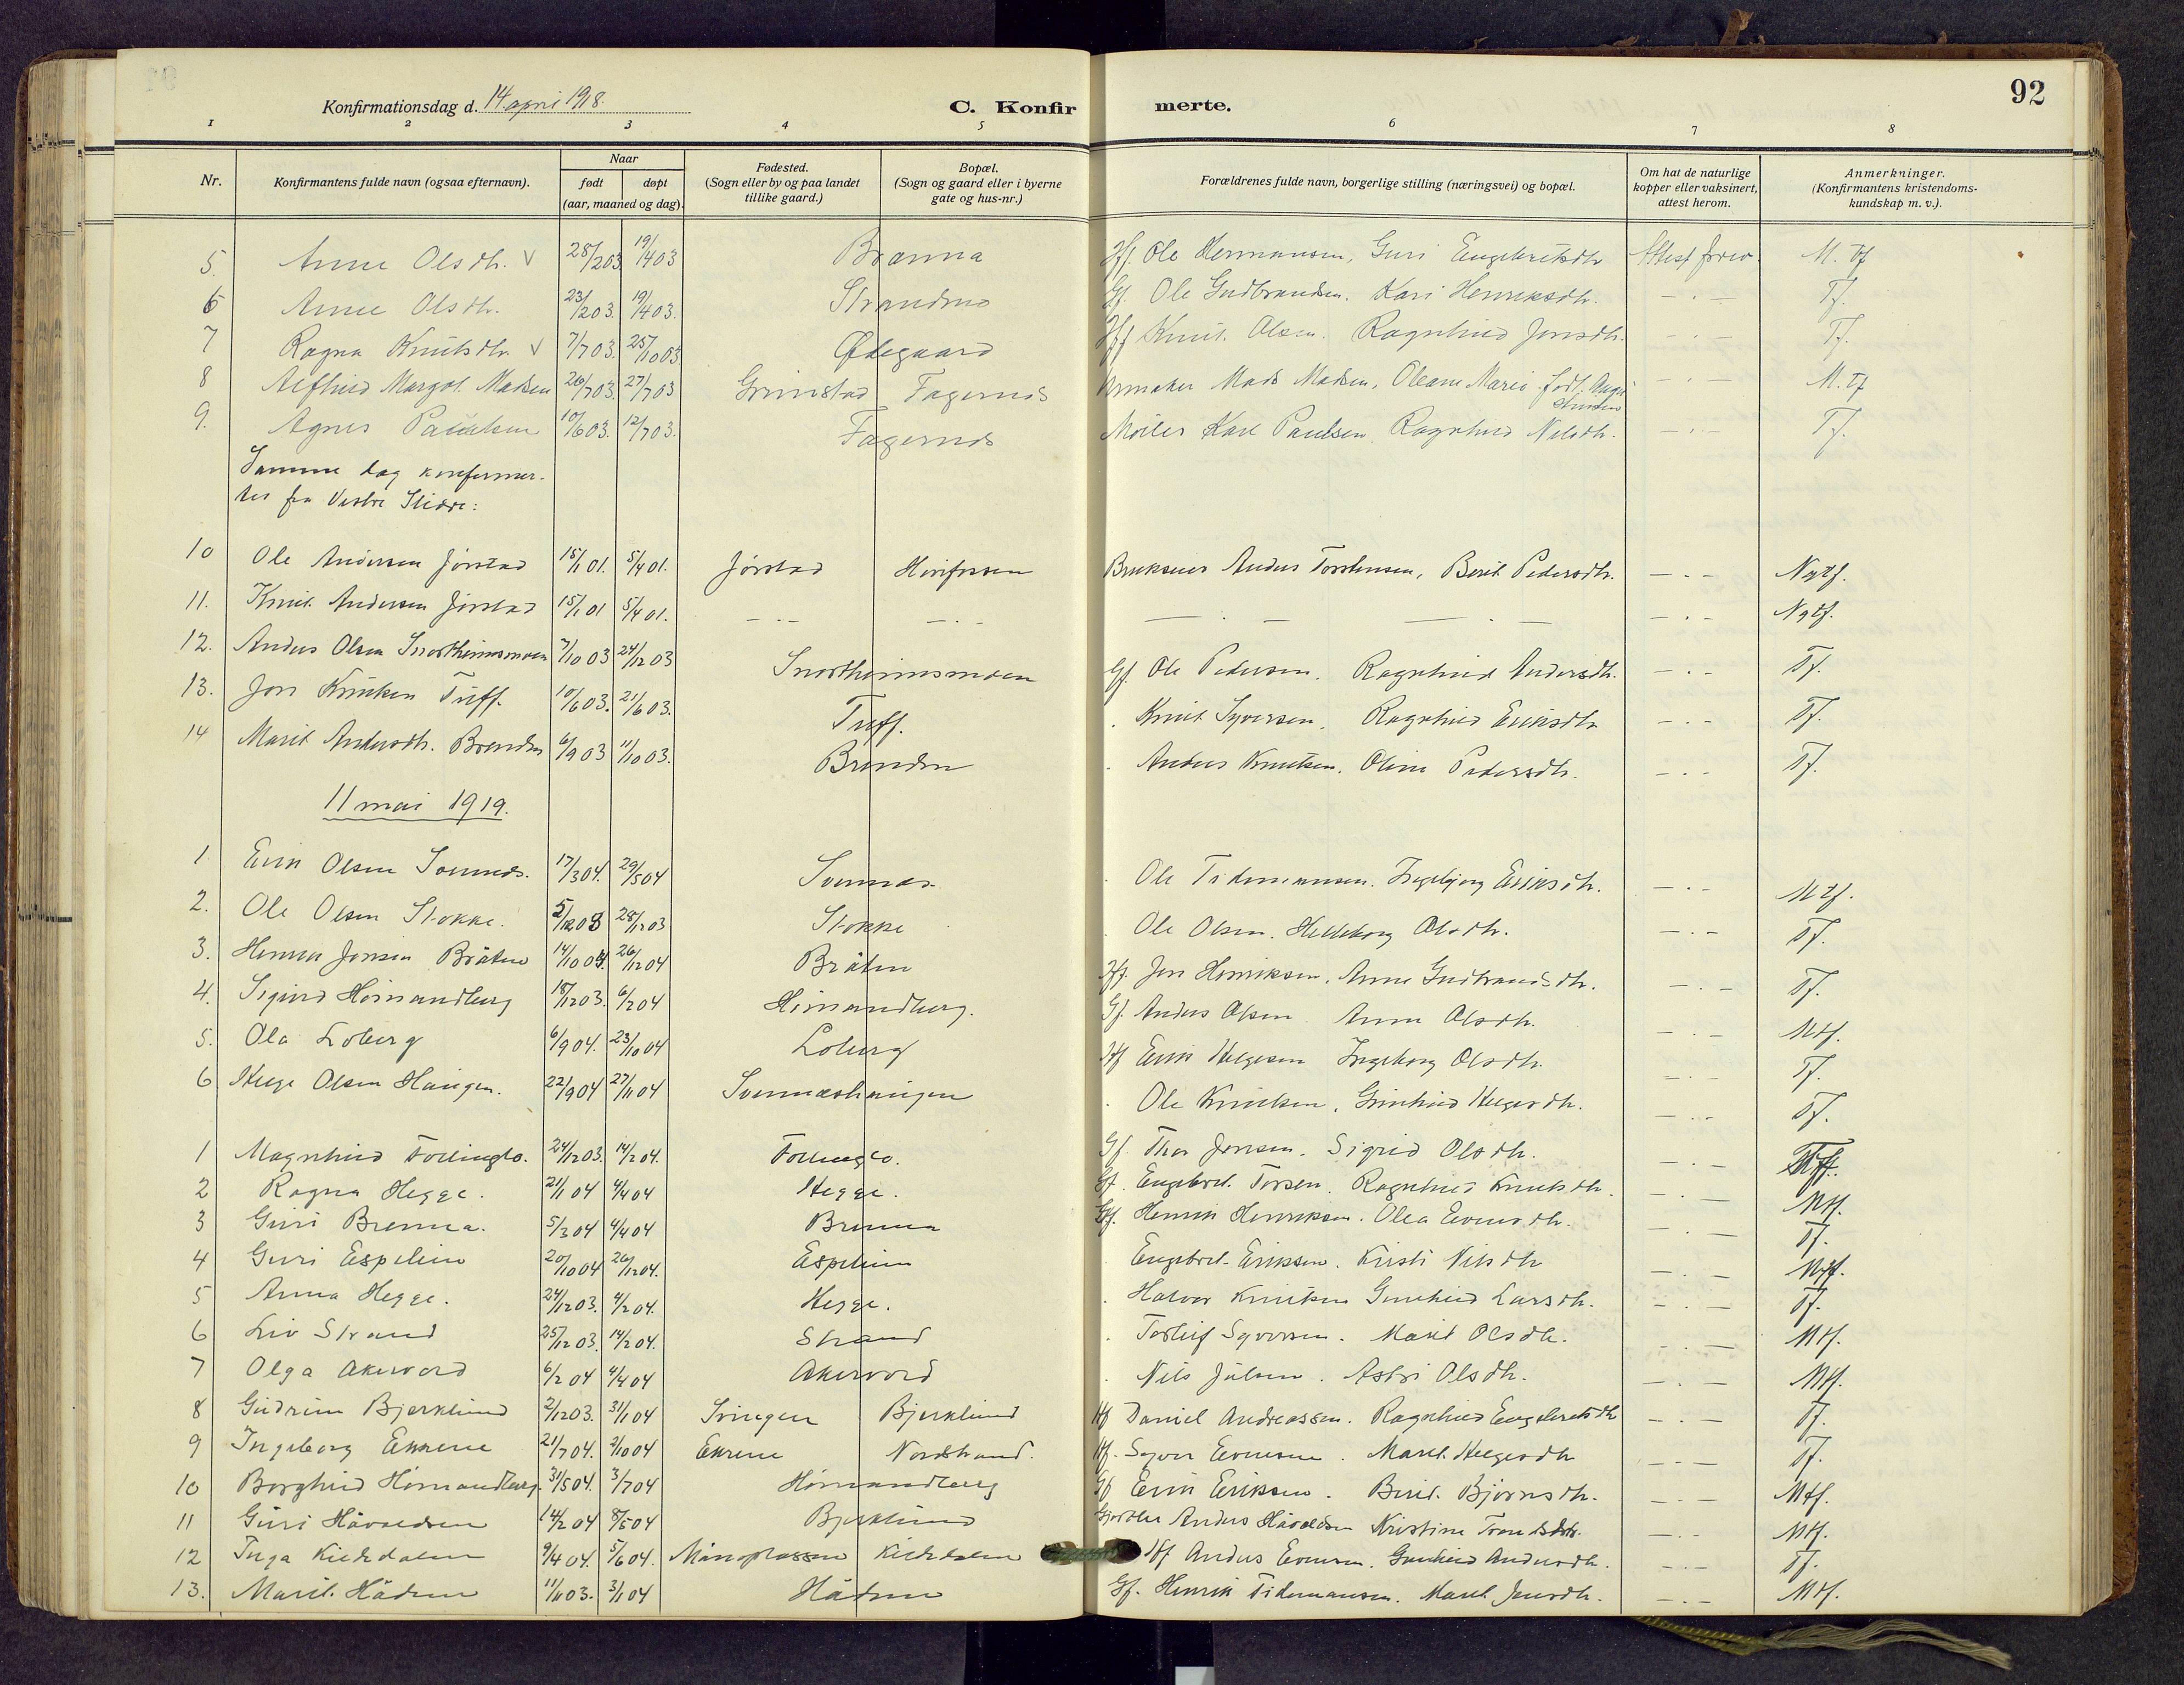 92
Konfirmationsdag d. 14 april 1918.
C. Konfirmerte.
1 2 3 4 5 6 7 8
Nr.
Konfirmantens fulde navn (ogsaa efternavn).
Naar
født
døpt
(aar, maaned og dag).
Fødested.
(Sogn eller by og paa landet
tillike gaard.)
Bopæl.
(Sogn og gaard eller i byerne
gate og hus-nr.)
Forældrenes fulde navn, borgerlige stilling (næringsvei) og bopæl.
Om hat de naturlige
kopper eller vaksinert,
attest herom.
Anmerkninger.
(Konfirmantens kristendoms-
kundskap m. v.).
5. Anne Olsdtr. V 28/2 03 19/4 03 Brenna Ole Hermansen, Guri Engebretsdtr Attest M. Tf
6 Anne Olsdtr. 23/2 03. 19/4 03. Strandmo Gf. Ole Gudbrandsen. Kari Henriksdtr. — . — Tf.
7 Ragna Knutsdtr V 7/7 03. 25/10 03 Ødegaard Knut Olsen. Ragnhild Jonsdtr. — . — Tf.
8 Alfhild Margot Madsen 26/7 03. 27/7 03 Grimstad Fagernes Urmaker Mads Madsen, Oleane Marie født — . — M. Tf
9. Agnes Paulsen 10/6 03. 12/7 03. Fagernes Møller Karl Paulsen Ragnhild Nilsdtr. — . — Tf.
Samme dag konfirmer-
tes fra Vestre Slidre:
10 Ole Andersen Jørstad 15/1 01. 5/4 01. Jørstad Hørifossen Brukseier Anders Torstensen, Berit Pedersdtr. — . — Ngtf.
11. Knut Andersen Jørstad 15/1 01 5/4 01. — . — — . — — . — — . — — . — Ngtf.
12. Anders Olsen Snortheimsmoen 7/10 03 24/12 03 Snortheimsmoen Gf. Ole Pedersen. Ragnhild Andersdtr. — . — Tf.
13. Jon Knutsen Tuff. 10/6 03. 21/6 03. Tuff. . Knut Syversen. Ragnhild Eriksdtr — . — Tf.
14 Marit Andersdtr. Brenden 6/9 03 11/10 03. Brenden . Anders Knutsen. Oline Pedersdtr. — . — Tf.
11 mai 1919.
1 Erik Olsen Svennes. 17/3 04. 29/5 04 Svennes. . Ole Tidemansen. Ingebjørg Eriksdtr. — . — Mtf.
2. Ole Olsen Stokke. 5/12 03 28/12 03 Stokke . Ole Olsen. Helleborg Olsdtr. — . — Tf.
3. Henrik Jonsen Bråten 14/10 04. 26/12 04 Bråten Hf. Jon Henriksen. Anne Gudbrandsdtr. — . — Tf.
4. Sigurd Hømandberg 18/12 03. 6/2 04 Hømandberg. Gf. Anders Olsen Anne Olsdtr. — . — Mtf.
5. Ola Loberg 6/9 04. 23/10 04 Loberg Hf Erik Helgesen Ingeborg Olsdtr. — . — Tf.
6 Helge Olsen Haugen. 22/9 04 27/11 04 Svenneshaugen . Ole Knutsen. Gunhild Helgesdtr. — . — Tf.
1 Magnhild Follinglo. 24/12 03. 14/2 04. Follinglo. Gf. Thor Jonsen. Sigrid Olsdtr. — . —
2 Ragna Hegge. 21/1 04 4/4 04 Hegge. Gf. Engebret Torsen. Ragnhild Knutsdtr. — . — Mtf.
3 Guri Brenna. 5/3 04 4/4 04 Brenna Gf. Henrik Henriksen. Olea Evensdtr. — . — Tf.
4 Guri Espelien 20/10 04 26/12 04. Espelien . Engebret Eriksen. Kristi Nilsdtr — . — Mtf.
5 Anna Hegge. 24/12 03. 4/2 04. Hegge. . Halvor Knutsen Gunhild Larsdtr. — . — Tf.
6 Liv Strand 25/12 03. 14/2 04. Strand . Torleif Syversen. Marit Olsdtr. — . — Mtf.
7 Olga Akervord 6/2 04 4/4 04 Akervord . Nils Julsen. Astri Olsdtr. — . — Mtf.
8 Gudrun Bjerklund 2/12 03. 31/1 04 Svingen Bjerklund Hf Daniel Andreassen. Ragnhild Engebretsdtr — . — Tf.
9 Ingeborg Ekrene 21/7 04. 2/10 04 Ekrene Nordstrand. Hf. Syver Evensen. Marit Helgesdtr — . — Tf.
10 Borghild Hømandberg. 31/5 04. 3/7 04 Hømandberg Gf Erik Eriksen. Berit Bjørnsdtr. — . — Mtf.
11 Guri Håvaldsen 14/2 04 8/5 04 Bjerklund Anders Håvaldsen Kristine Trondsdtr. — . — Mtf.
12 Inga Kildedalen 9/4 04. 5/6 04. Månoplassen Kildedalen Hf Anders Evensen. Gunhild Andersdtr. — . — Tf.
13. Marit Hådem 11/11 03. 3/1 04 Hådem Gf. Henrik Tidemansen. Marit Jensdtr. — . — Mtf.